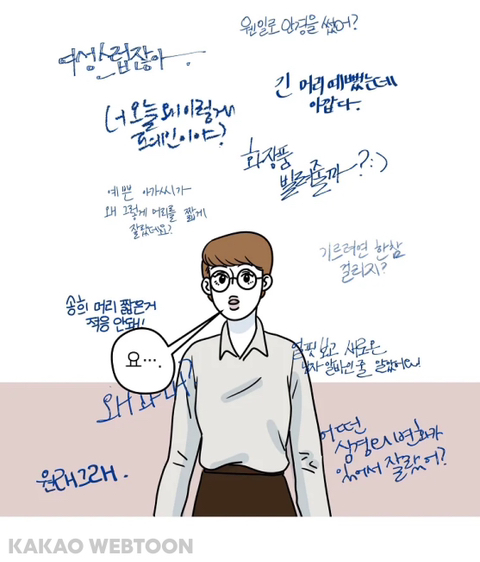 웬일로 안경을 썼어?
여성스럽잖아~.
긴 머리 예뻤는데
아깝다.
(너 오늘 왜 이렇게
프레인이야?
화장품
빌려줄까~?:)
예쁜 아가씨가
왜 그렇게 머리를 짧게
잘랐데요?
기르려면 한참
걸리지?
송희 머리 짧은거
적응 안돼!
요….
얼핏 보고 새로온
남자 알바인 줄 알았어요.
왜
어떤
심경의 변화가
있어서 잘랐어?
원래 그래.
KAKAO WEBTOON